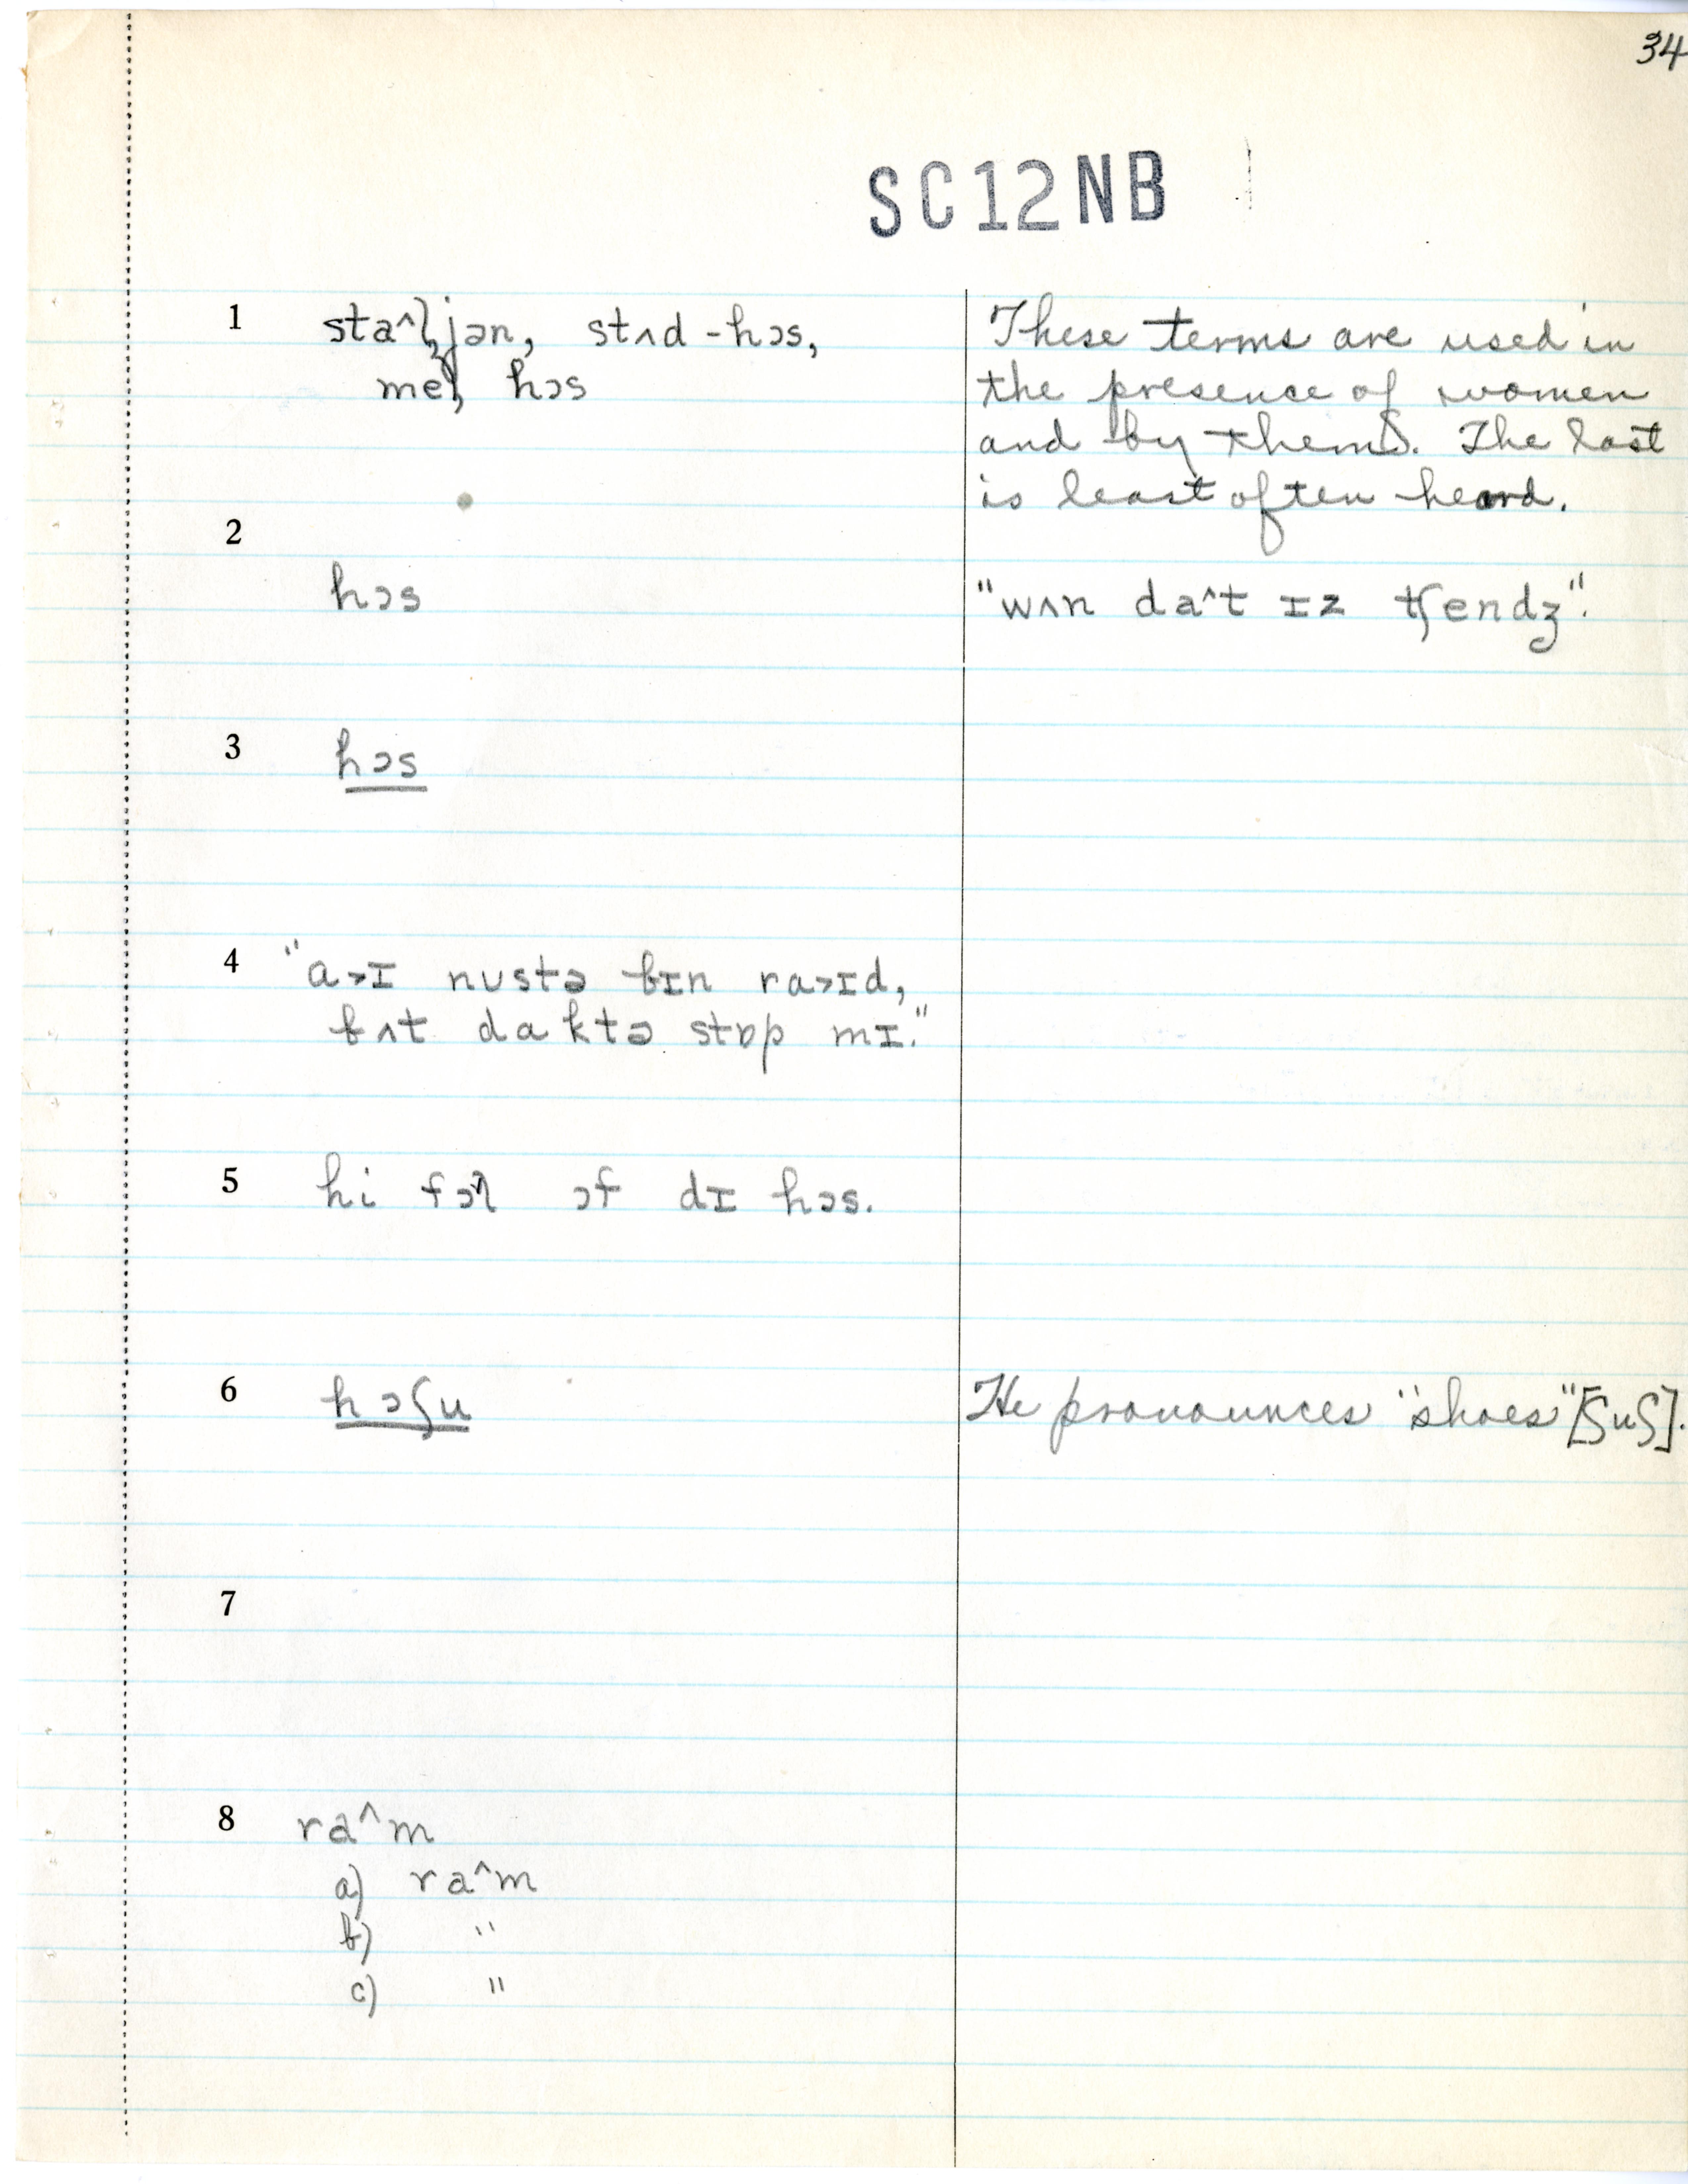 34
SC12NB
1 sta^ljən, stʌd-hɔs, These terms are used in
mel hɔs the presence of women
and by them. The last
is least often heard.
2
hɔs "wʌn da^t ɪz tʃendʒ".
3 hɔs
4 "a>ɪ nustə bɪn ra>ɪd,
bʌt daktə stɒp mɪ."
5 hi fɔl ɔf dɪ hɔs.
6 hɔʃu He pronounces "shoes" [ʃuʃ].
7
8 ra^m
a) ra^m
b) "
c) "